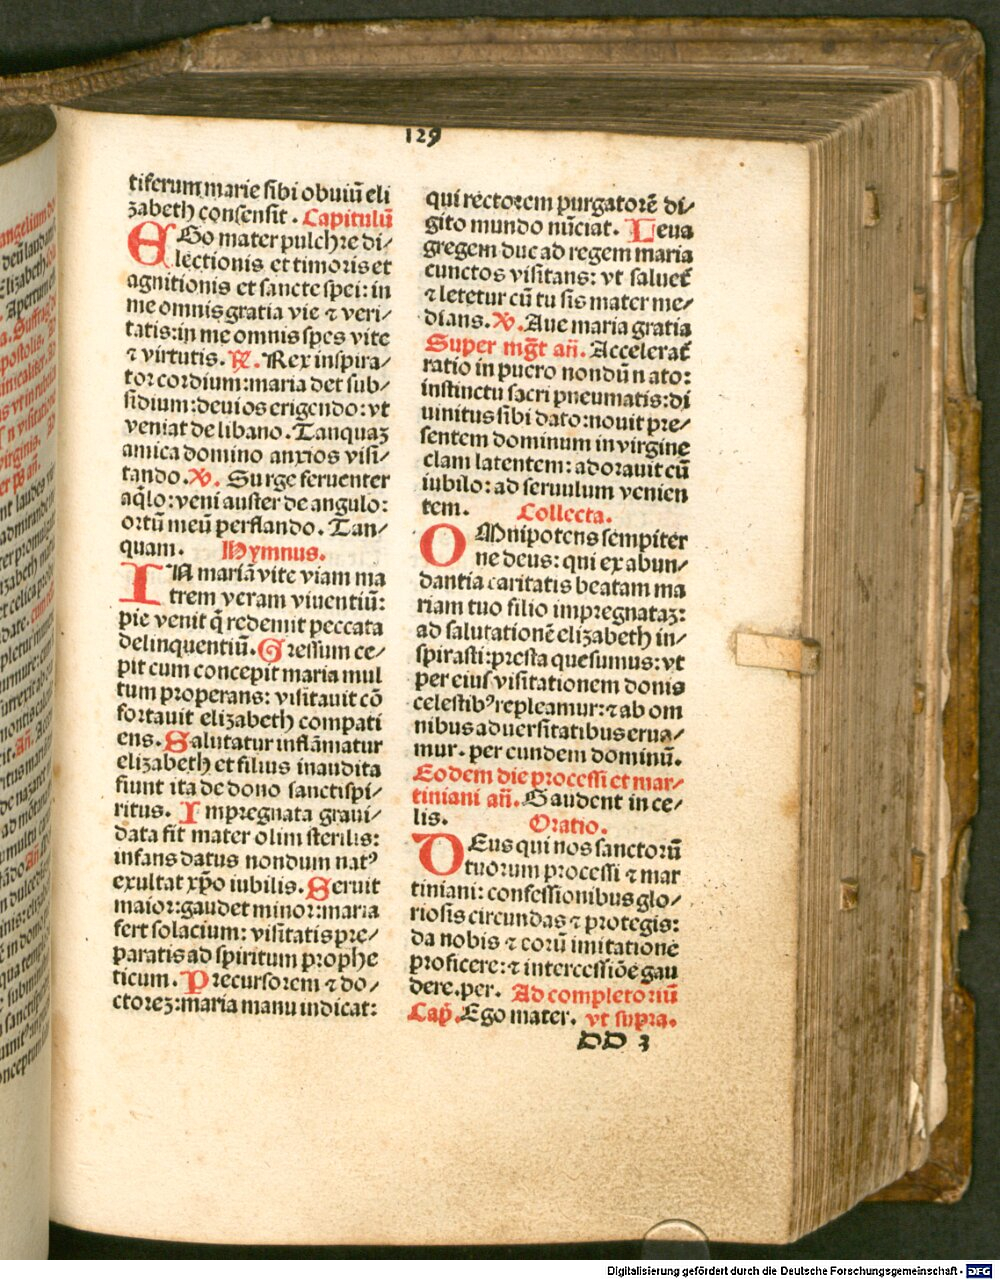 129
tiferum marie sibi obuiũ eli
zabeth consensit. Capitulũ
EGo mater pulchre di⸗
lectionis et timoris et
agnitionis et sancte spei: in
me omnis gratia vie ⁊ veri⸗
tatis: in me omnis spes vite
⁊ virtutis. ℟. Rex inspira⸗
tor cordium: maria det sub⸗
sidium: deuios erigendo: vt
veniat de libano. Tanquaꝫ
amica domino anxios visi⸗
tando. ℣. Surge feruenter
aq̃lo: veni auster de angulo:
ortũ meũ perflando. Tan⸗
quam. Hymnus.
IN mariã vite viam ma
trem veram viuentiũ:
pie venit q̃ redemit peccata
delinquentiũ. Gressum ce⸗
pit cum concepit maria mul
tum properans: visitauit cõ
fortauit elizabeth compati
ens. Salutatur inflãmatur
elizabeth et filius inaudita
fiunt ita de dono sanctispi⸗
ritus. Impregnata graui⸗
data fit mater olim sterilis:
infans datus nondum natꝰ
exultat xp̃o iubilis. Seruit
maior: gaudet minor: maria
fert solacium: visitatis pre⸗
paratis ad spiritum prophe
ticum. Precursorem ⁊ do⸗
ctoreꝫ: maria manu indicat:
qui rectorem purgatorẽ di⸗
gito mundo nũciat. Leua
gregem duc ad regem maria
cunctos visitans: vt saluet̃
⁊ letetur cũ tu sis mater me⸗
dians. ℣. Aue maria gratia
Super mg̃t añ. Accelerat̃
ratio in puero nondũ nato:
instinctu sacri pneumatis: di
uinitus sibi dato: nouit pre⸗
sentem dominum in virgine
clam latentem: adorauit cũ
iubilo: ad seruulum venien
tem. Collecta.
OMnipotens sempiter
ne deus: qui ex abun⸗
dantia caritatis beatam ma
riam tuo filio impregnataꝫ:
ad salutationẽ elizabeth in⸗
spirasti: presta quesumus: vt
per eius visitationem donis
celestibꝰ repleamur: ⁊ ab om
nibus aduersitatibus erua⸗
mur. per eundem dominũ.
Eodem die processi et mar⸗
tiniani añ. Gaudent in ce⸗
lis. Oratio.
DEus qui nos sanctorũ
tuorum processi ⁊ mar
tiniani: confessionibus glo⸗
riosis circundas ⁊ protegis:
da nobis ⁊ eorũ imitatione
proficere: ⁊ intercessiõe gau
dere. per. Ad completoriũ
Cap̃. Ego mater. vt supra.
DD 3
Digitalisierung gefördert durch die Deutsche Forschungsgemeinschaft - DFG